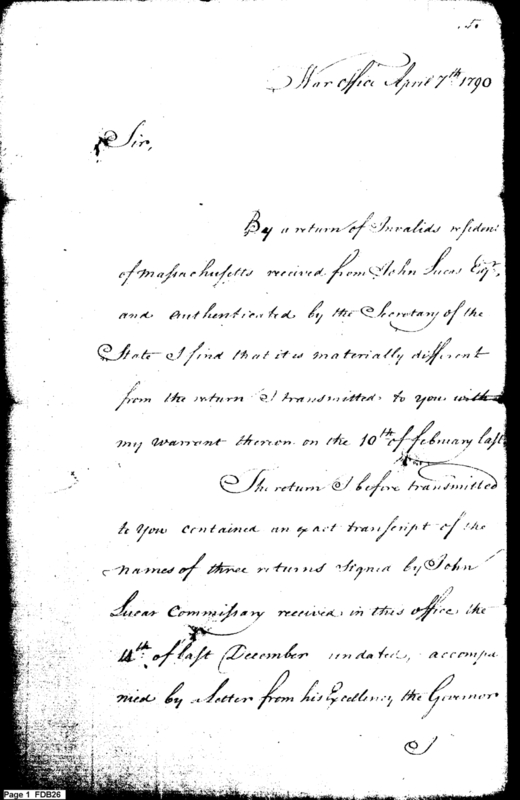 .5.
War Office April 7th 1790
Sir,
By a return of Invalids resident
of Massachusetts received from John Lucas Esqr.
and authenticated by the Secretary of the
State I find that it is materially different
from the return I transmitted to you with
my warrant thereon on the 10th of february last
The return I before transmitted
to you contained an exact transcript of the
names of three returns signed by John
Lucas Commissary received in this office the
14th of last December undated, accompa
nied by a letter from his Excellency the Governor
I
Page 1 FDB26